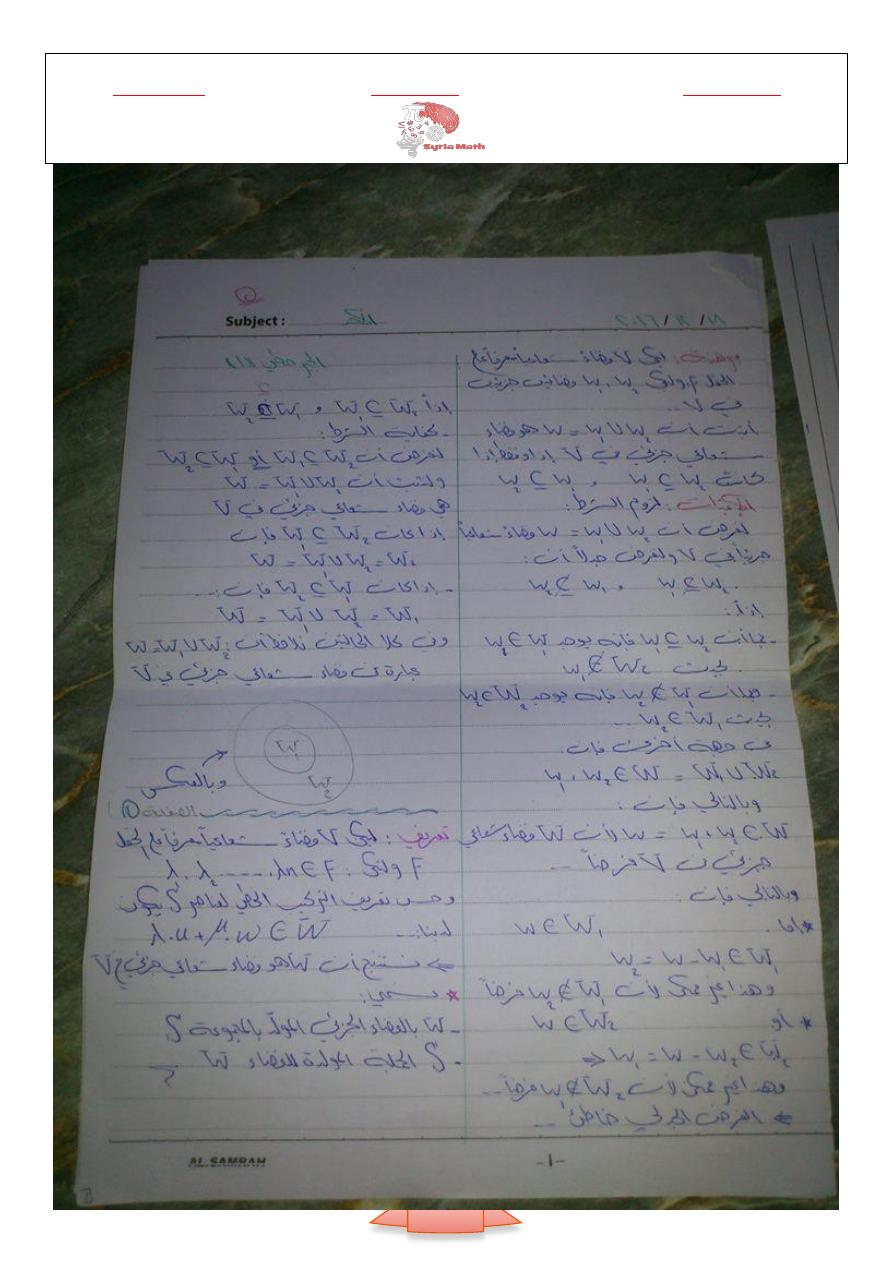 Syria Math
Subject :
الجبر الخطي (1)
مبرهنة: ليكن V فضاء شعاعياً معرفاً على
الحقل F وليكن W₁, W₂ فضائين جزئيين
في V ...
أثبت أن W = W₁ ∪ W₂ هو فضاء
شعاعي جزئي في V إذا وفقط إذا
كانت
الإثبات: لزوم الشرط:
لنفرض أن W = W₁ ∪ W₂ فضاء شعاعياً
جزئياً في V ولنفرض جدلاً أن:
W₂ ⊈ W₁ , W₁ ⊈ W₂
إذاً:
- بما أن W₁ ⊈ W₂ فإنه يوجد w₁ ∈ W₁
بحيث w₁ ∉ W₂
- وبما أن فإنه يوجد w₂ ∈ W₂
بحيث
من جهة أخرى فإن:
w₁, w₂ ∈ W = W₁ ∪ W₂
وبالتالي فإن:
w = w₁ + w₂ ∈ W لأن W فضاء شعاعي
جزئي من V فرضاً ...
وبالتالي فإن:
* إما w ∈ W₁
w₂ = w - w₁ ∈ W₁
وهذا غير ممكن لأن w₂ ∉ W₁ فرضاً
* أو w ∈ W₂
⇒ w₁ = w - w₂ ∈ W₂
وهذا غير ممكن لأن w₁ ∉ W₂ فرضاً ...
⇐ الفرض الجدلي خاطئ ...
إذاً W₁ ⊆ W₂ , W₂ ⊆ W₁
- كفاية الشرط:
لنفرض أن W₁ ⊆ W₂ أو W₂ ⊆ W₁
ولنثبت أن W = W₁ ∪ W₂
هي فضاء شعاعي جزئي في V
إذا كانت W₁ ⊆ W₂ فإن
W = W₁ ∪ W₂ = W₂
- إذا كانت W₂ ⊆ W₁ فإن: ...
W = W₁ ∪ W₂ = W₁
وفي كلا الحالتين نلاحظ أن: W = W₁ ∪ W₂
عبارة عن فضاء شعاعي جزئي في V
W₁
W₂
وبالعكس
تعريف: ليكن V فضاء شعاعياً معرفاً على الحقل
F وليكن: λ₁, λ₂, ..... λn ∈ F
وحسب تعريف التركيب الخطي لعناصر S يكون
لدينا: λ.u + μ.w ∈ W
⇐ نستنتج أن W هو فضاء شعاعي جزئي في V
* نسمي:
- W بالفضاء الجزئي المولد بالمجموعة S
- S الجملة المولدة للفضاء W
AL SAMRAH
-1-